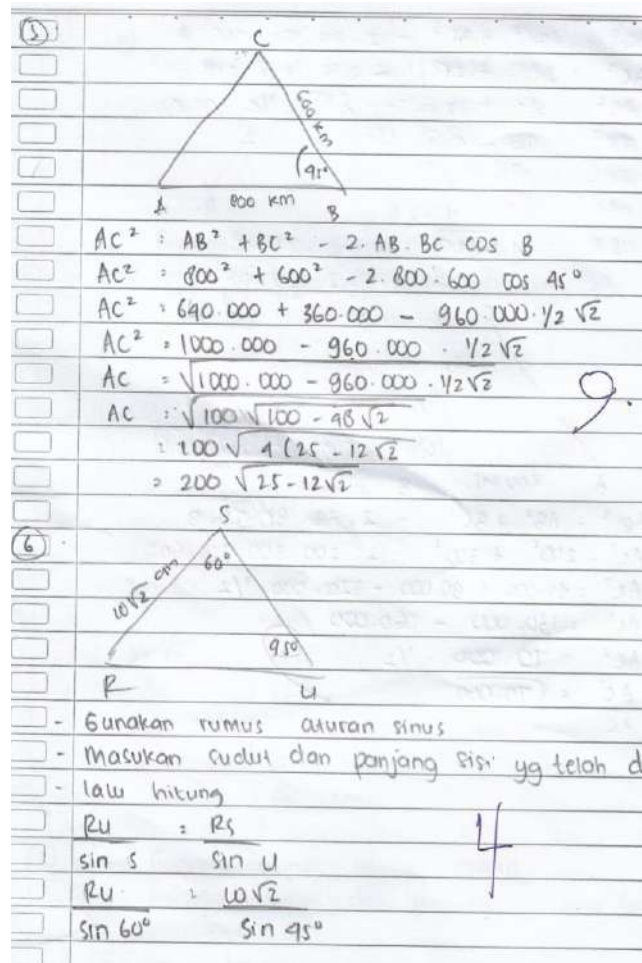 5
C
600 km
45°
A 800 km B
AC² = AB² + BC² - 2. AB. BC cos B
AC² = 800² + 600² - 2. 800. 600 cos 45°
AC² = 640.000 + 360.000 - 960.000. 1/2 √2
AC² = 1000.000 - 960.000 . 1/2 √2
AC = √1000.000 - 960.000 . 1/2 √2
AC = √100 √100 - 48 √2
= 100 √ 4 (25 - 12 √2
= 200 √25 - 12√2
9.
6
S
60°
10√2 cm
45°
R U
- Gunakan rumus aturan sinus
- Masukan sudut dan panjang sisi yg telah d
- lalu hitung
RU = RS
sin S sin U
RU = 10√2
sin 60° sin 45°
4